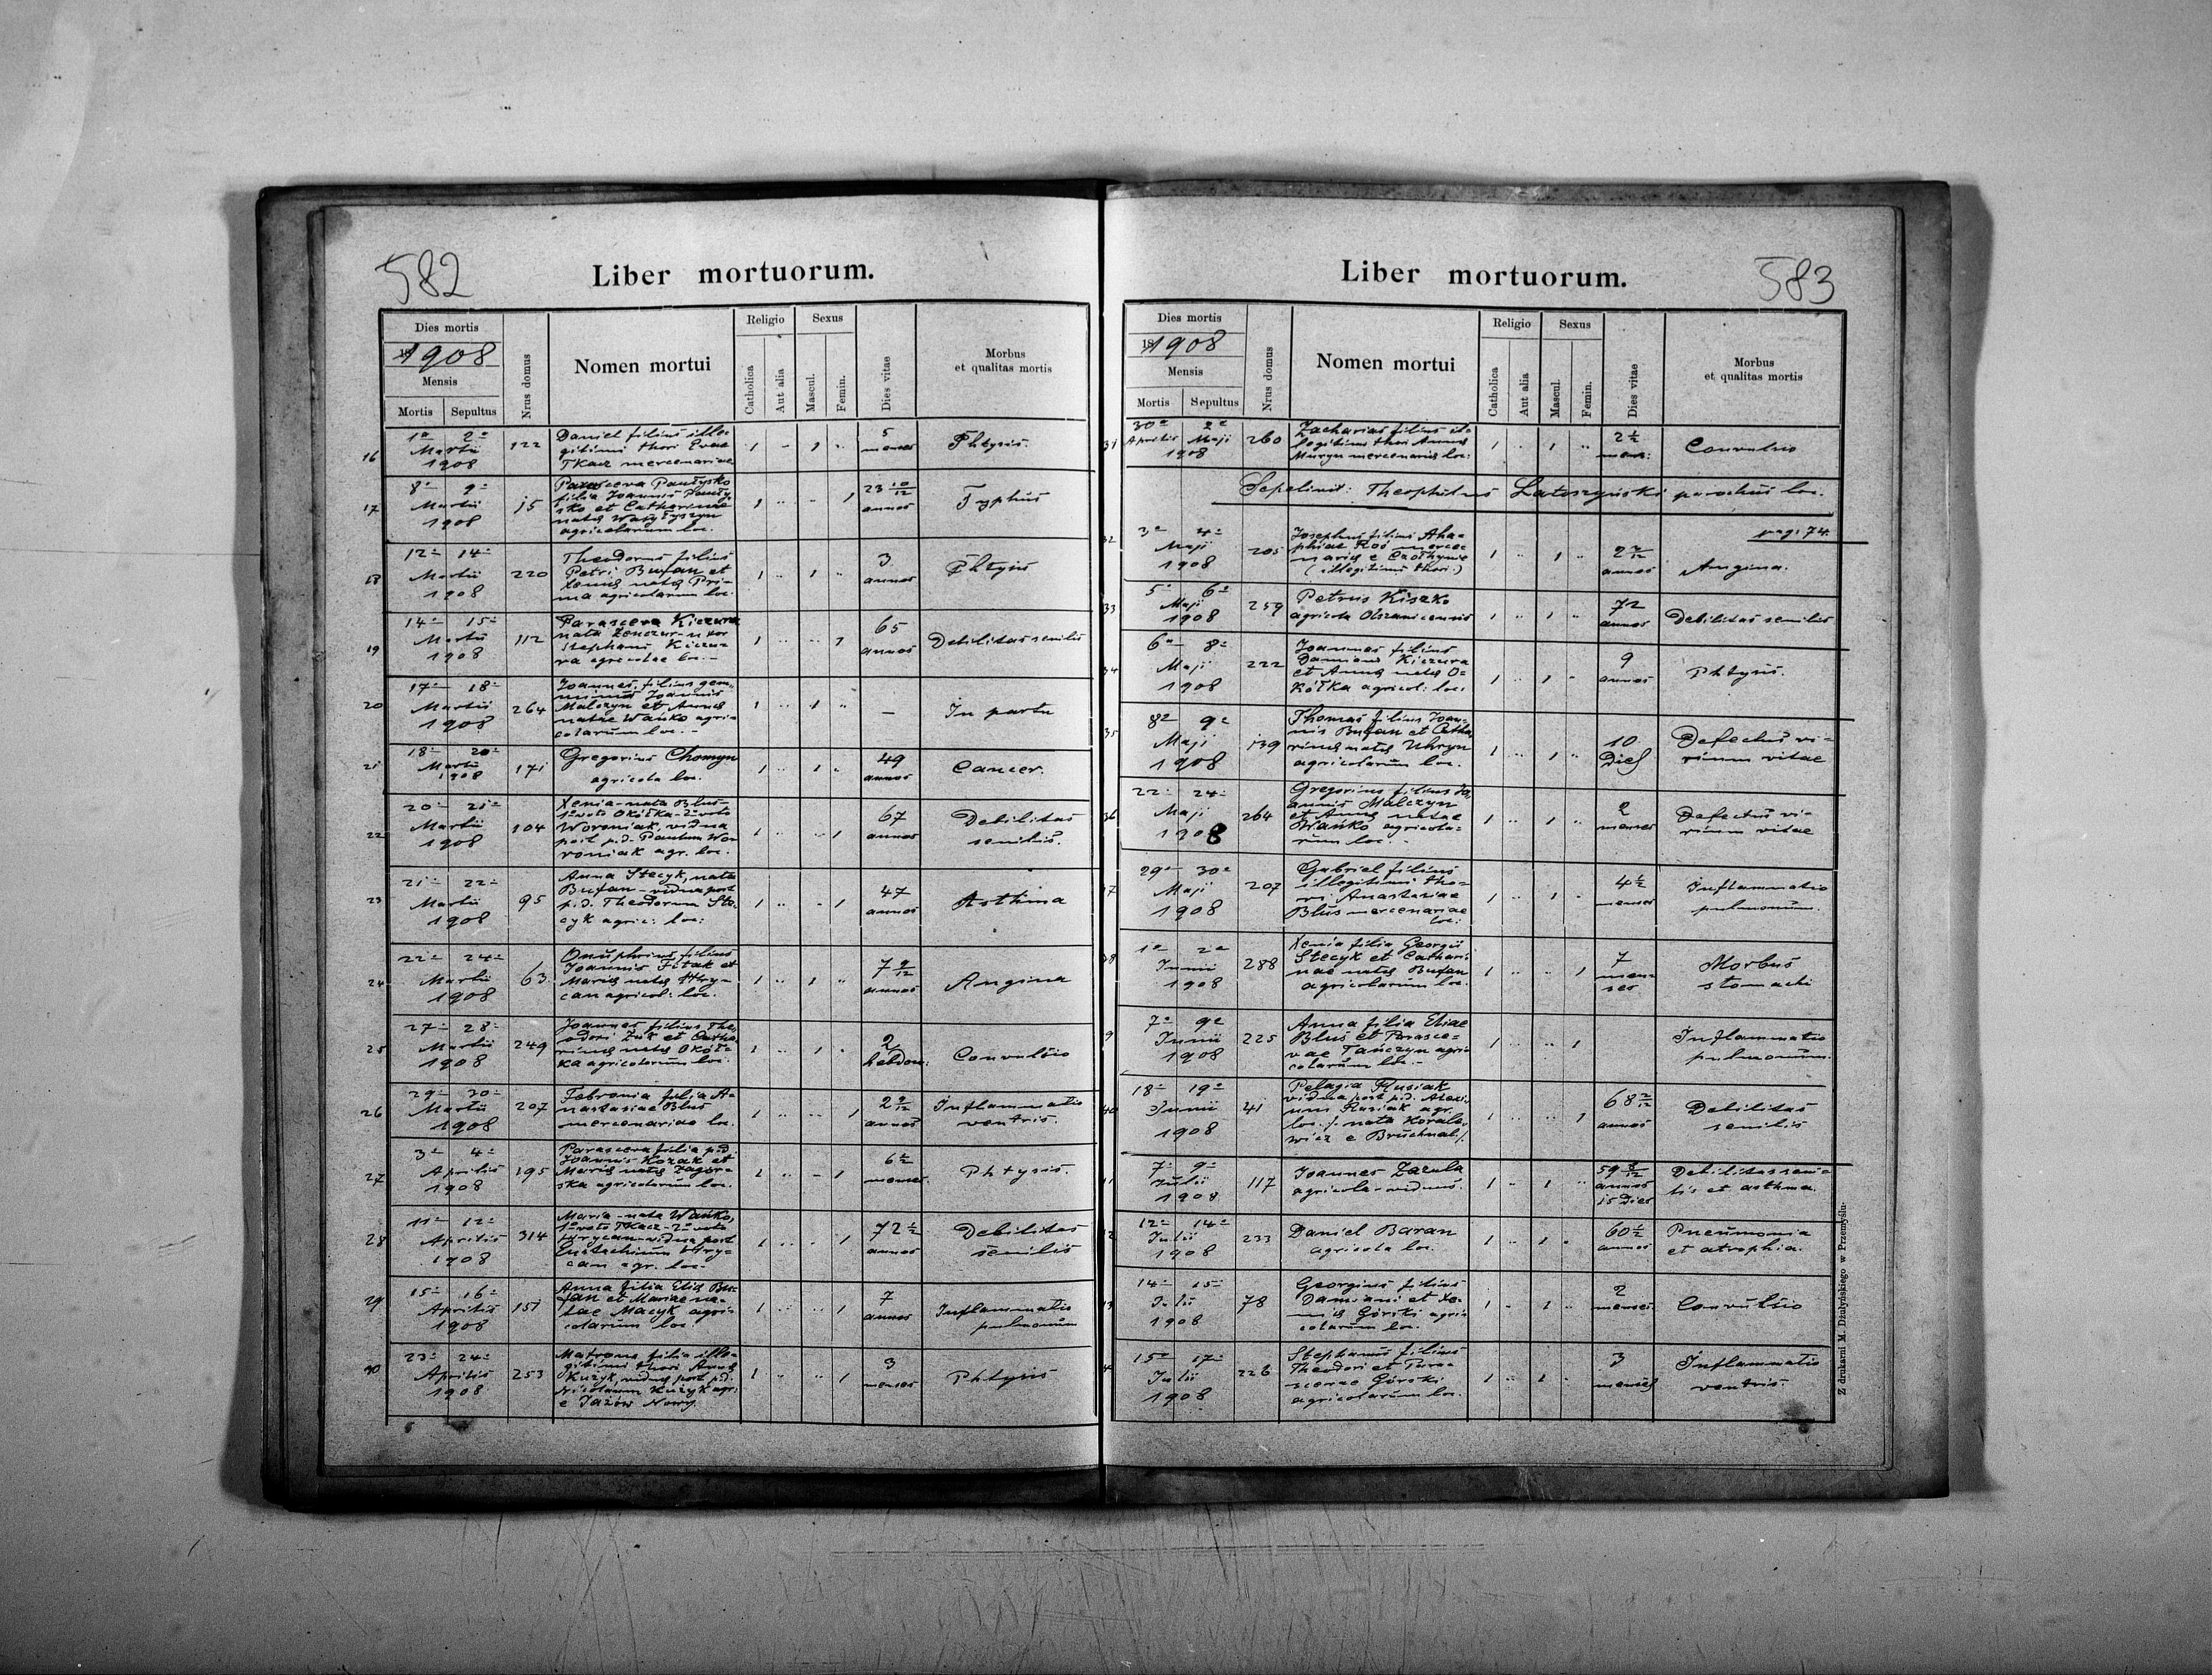 582
Liber mortuorum.
Dies mortis
1908
Mensis
Mortis Sepultus
Nrus domus
Nomen mortui
Religio
Catholica
Aut alia
Sexus
Mascul.
Femin.
Dies vitae
Morbus
et qualitas mortis
16
1a 2a
Martii
1908
122
Daniel filius ille-
gitimi thori Evae
Tkacz mercenariae
5
menses
Phtysis.
17
8a 9a
Martii
1908
15
Parasceva Paułysko
filia Joannis Pauły-
sko et Catharinae
natae
agricolarum loc.
23 10/12
annos
Typhus
18
12a 14a
Martii
1908
220
Theodorus filius
Petri Bufan et
Xeniae natae Pri-
ma agricolarum loc.
3
annos
Phtysis
19
14a 15a
Martii
1908
112
Parasceva Kiczura
nata Zenczur - uxor
Stephani Kiczu-
ra agricolae loc. -
65
annos
Debilitas senilis
20
17a 18a
Martii
1908
264
Joannes, filius gem-
minus Joannis
Malczyn et Annae
natae Wańko agri-
colarum loc. -
—
In partu
21
18a 20a
Martii
1908
171
Gregorius Chomyn
agricola loc.
49
annos
Cancer.
22
20a 21a
Martii
1908
104
Xenia - nata Blus -
1o voto Okółka - 2o voto
Woroniak, vidua
post p.d. Paulum Wo-
roniak agr. loc.
67
annos
Debilitas
senilis.
23
21a 22a
Martii
1908
95
Anna Stecyk, nata
Bufan - vidua post
p.d. Theodorum Ste-
cyk agric: loc:
47
annos
Asthma
24
22a 24a
Martii
1908
63
Onuphrius filius
Joannis Fitak et
Mariae natae Hry-
can agricol: loc.
7 9/12
annos
Angina
25
27a 28a
Martii
1908
249
Joannes filius The-
odori Żuk et Catha-
rinae natae Okół-
ka agricolarum loc.
2
hebdom:
Convulsio
26
29a 30a
Martii
1908
207
Febronia filia A-
nastasiae Blus
mercenariae loc.
2 9/12
annos
Inflammatio
ventris.
27
3a 4a
Aprilis
1908
195
Parasceva filia p.d.
Joannis Kozak et
Mariae natae Zagor-
ska agricolarum loc.
6 1/2
menses
Phtysis.
28
11a 12a
Aprilis
1908
314
Maria - nata Wańko,
1o voto Tkacz - 2o voto
Hrycan - vidua post
Eustachium Hry-
can agr. loc.
72 1/2
annos
Debilitas
senilis
29
15a 16a
Aprilis
1908
151
Anna filia Eliae Bu-
fan et Mariae na-
tae Macyk agri-
colarum loc.
7
annos
Inflammatio
pulmonum
30
23a 24a
Aprilis
1908
253
Matrona filia ille-
gitimi thori Annae
Kużyk, viduae post p.d.
Nicolaum Kużyk agr:
e Jażów Nowy.
3
menses
Phtysis
583
Liber mortuorum.
Dies mortis
1908
Mensis
Mortis Sepultus
Nrus domus
Nomen mortui
Religio
Catholica
Aut alia
Sexus
Mascul.
Femin.
Dies vitae
Morbus
et qualitas mortis
31
30a 2a
Aprilis Maji
1908
260
Zacharias filius il-
legitimi thori Annae
Muryn mercenariae loc:
2 1/2
mens:
Convulsio
Sepelivit: Theophilus Latoszyński parochus loc.
pag: 74.
32
3a 4a
Maji
1908
205
Josephus filius Aha-
phiae Roś merce-
nariae e Czołhynie
(illegitimi thori.)
2 7/12
annos
Angina.
33
5a 6a
Maji
1908
259
Petrus Kiszko
agricola Olszanicensis
72
annos
Debilitas senilis
34
6a 8a
Maji
1908
222
Joannes filius
Damiani Kiczura
et Annae natae O-
kółka agricol: loc:
9
annos
Phtysis.
35
8a 9a
Maji
1908
139
Thomas filius Joan-
nis Bufan et Catha-
rinae natae Uhryn
agricolarum loc.
10
Dies
Defectus vi-
rium vitae
36
22a 24a
Maji
1908
264
Gregorius filius Jo-
annis Malczyn
et Annae natae
Wańko agricola-
rum loc. -
2
menses
Defectus vi-
rium vitae
37
29a 30a
Maji
1908
207
Gabriel filius
illegitimi tho-
ri Anastasiae
Blus mercenariae
loc:
4 1/2
menses
Inflammatio
pulmonum.
38
1a 2a
Junii
1908
288
Xenia filia Georgii
Stecyk et Cathari-
nae natae Bufan
agricolarum loc.
7
men-
ses
Morbus
stomachi
9
7a 9a
Junii
1908
225
Anna filia Eliae
Blus et Parasce-
vae Tańczyn agri-
colarum loc. -
Inflammatio
pulmonum.
40
18a 19a
Junii
1908
41
Pelagia Rusiak
vidua post p.d. Alexi-
um Rusiak agr.
loc. /: nata Kowale-
wicz e Bruchnal :/
68 2/12
annos
Debilitas
senilis
7a 9a
Julii
1908
117
Joannes Zazula
agricola - viduus.
59 8/12
annos
15 Dies
Debilitas seni-
lis et asthma.
12a 14a
Julii
1908
233
Daniel Baran
agricola loc.
60 1/2
annos
Pneumonia
et atrophia.
14a 15a
Julii
1908
78
Georgius filius
Damiani et Xe-
niae Górski agri-
colarum loc.
2
menses
Convulsio
15a 17a
Julii
1908
226
Stephanus filius
Theodori et Para-
scevae Górski
agricolarum loc.
3
menses
Inflammatio
ventris.
Z drukarni M. Dżułyńskiego w Przemyślu.